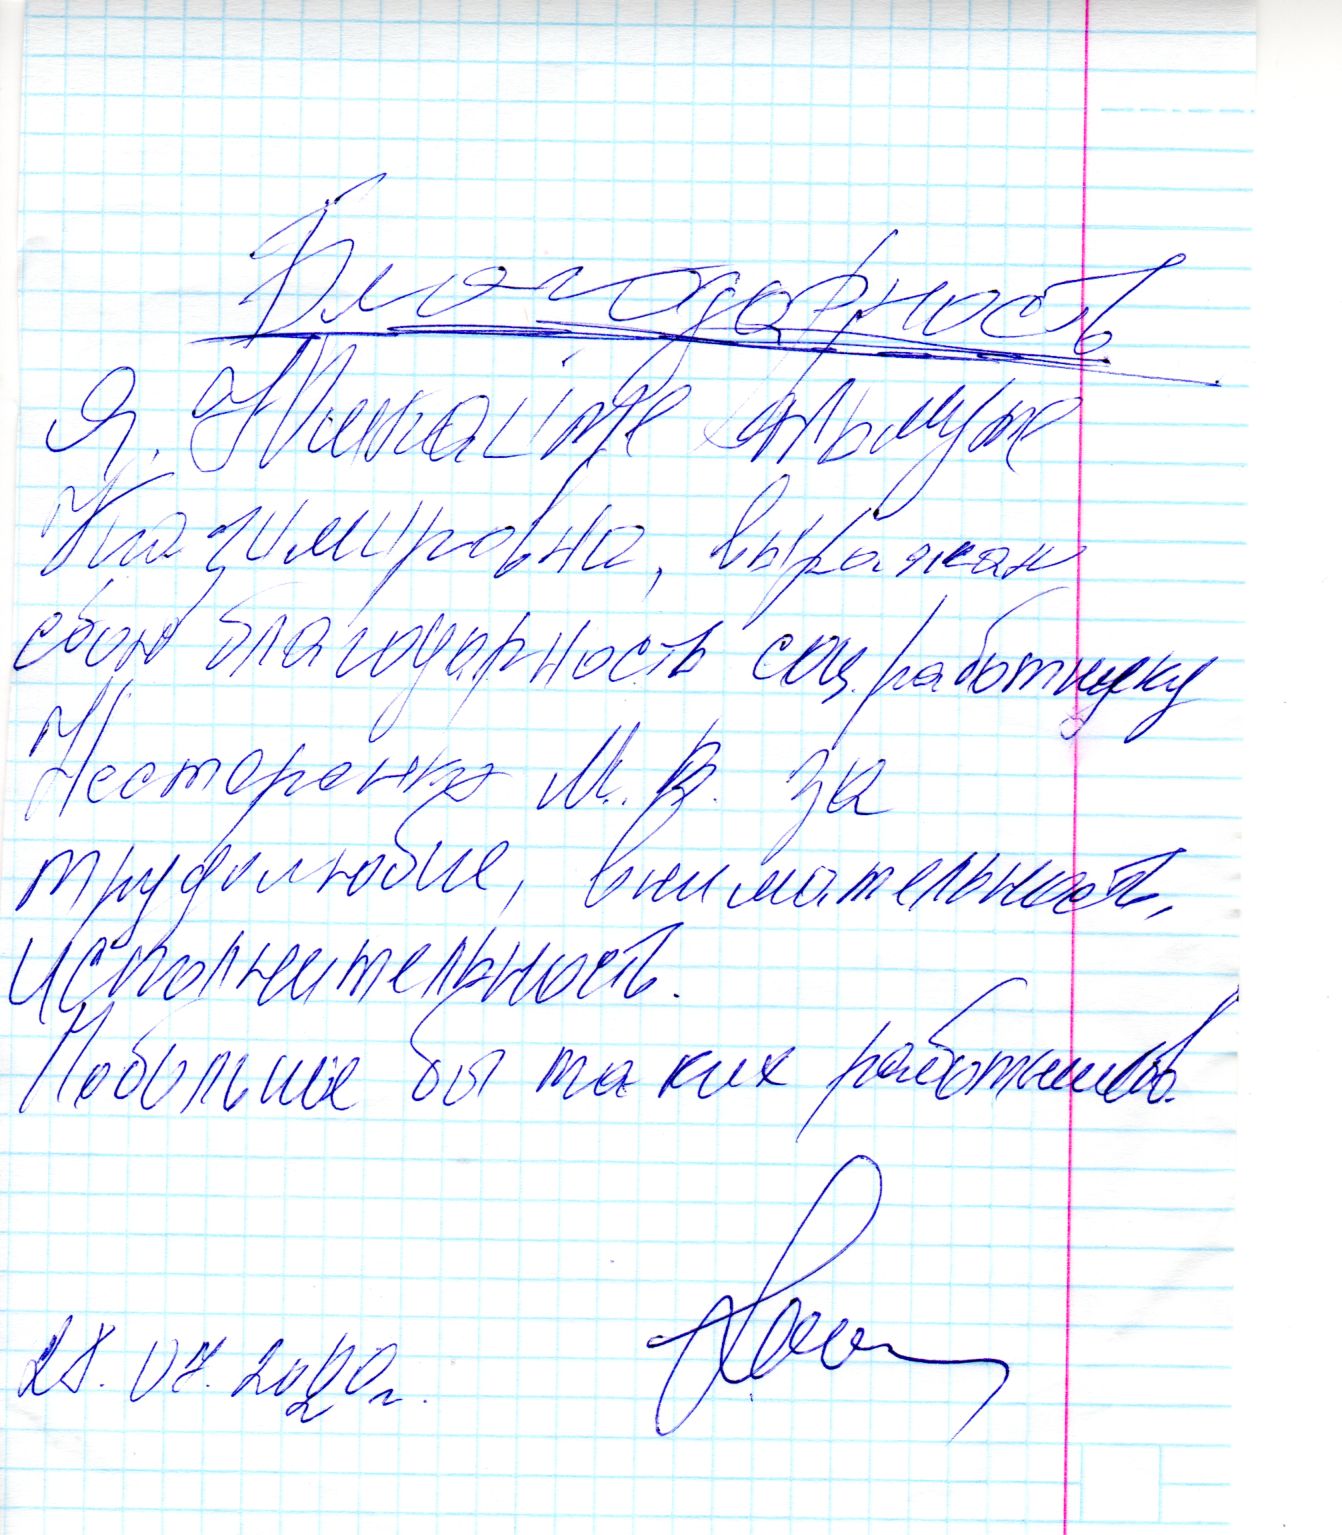 Благодарность
Я,
Казимировна, выражаю
свою благодарность соц. работнику
Нестеренко М. В. за
трудолюбие, внимательность,
исполнительность.
Побольше бы таких работников.
07. 2020г.